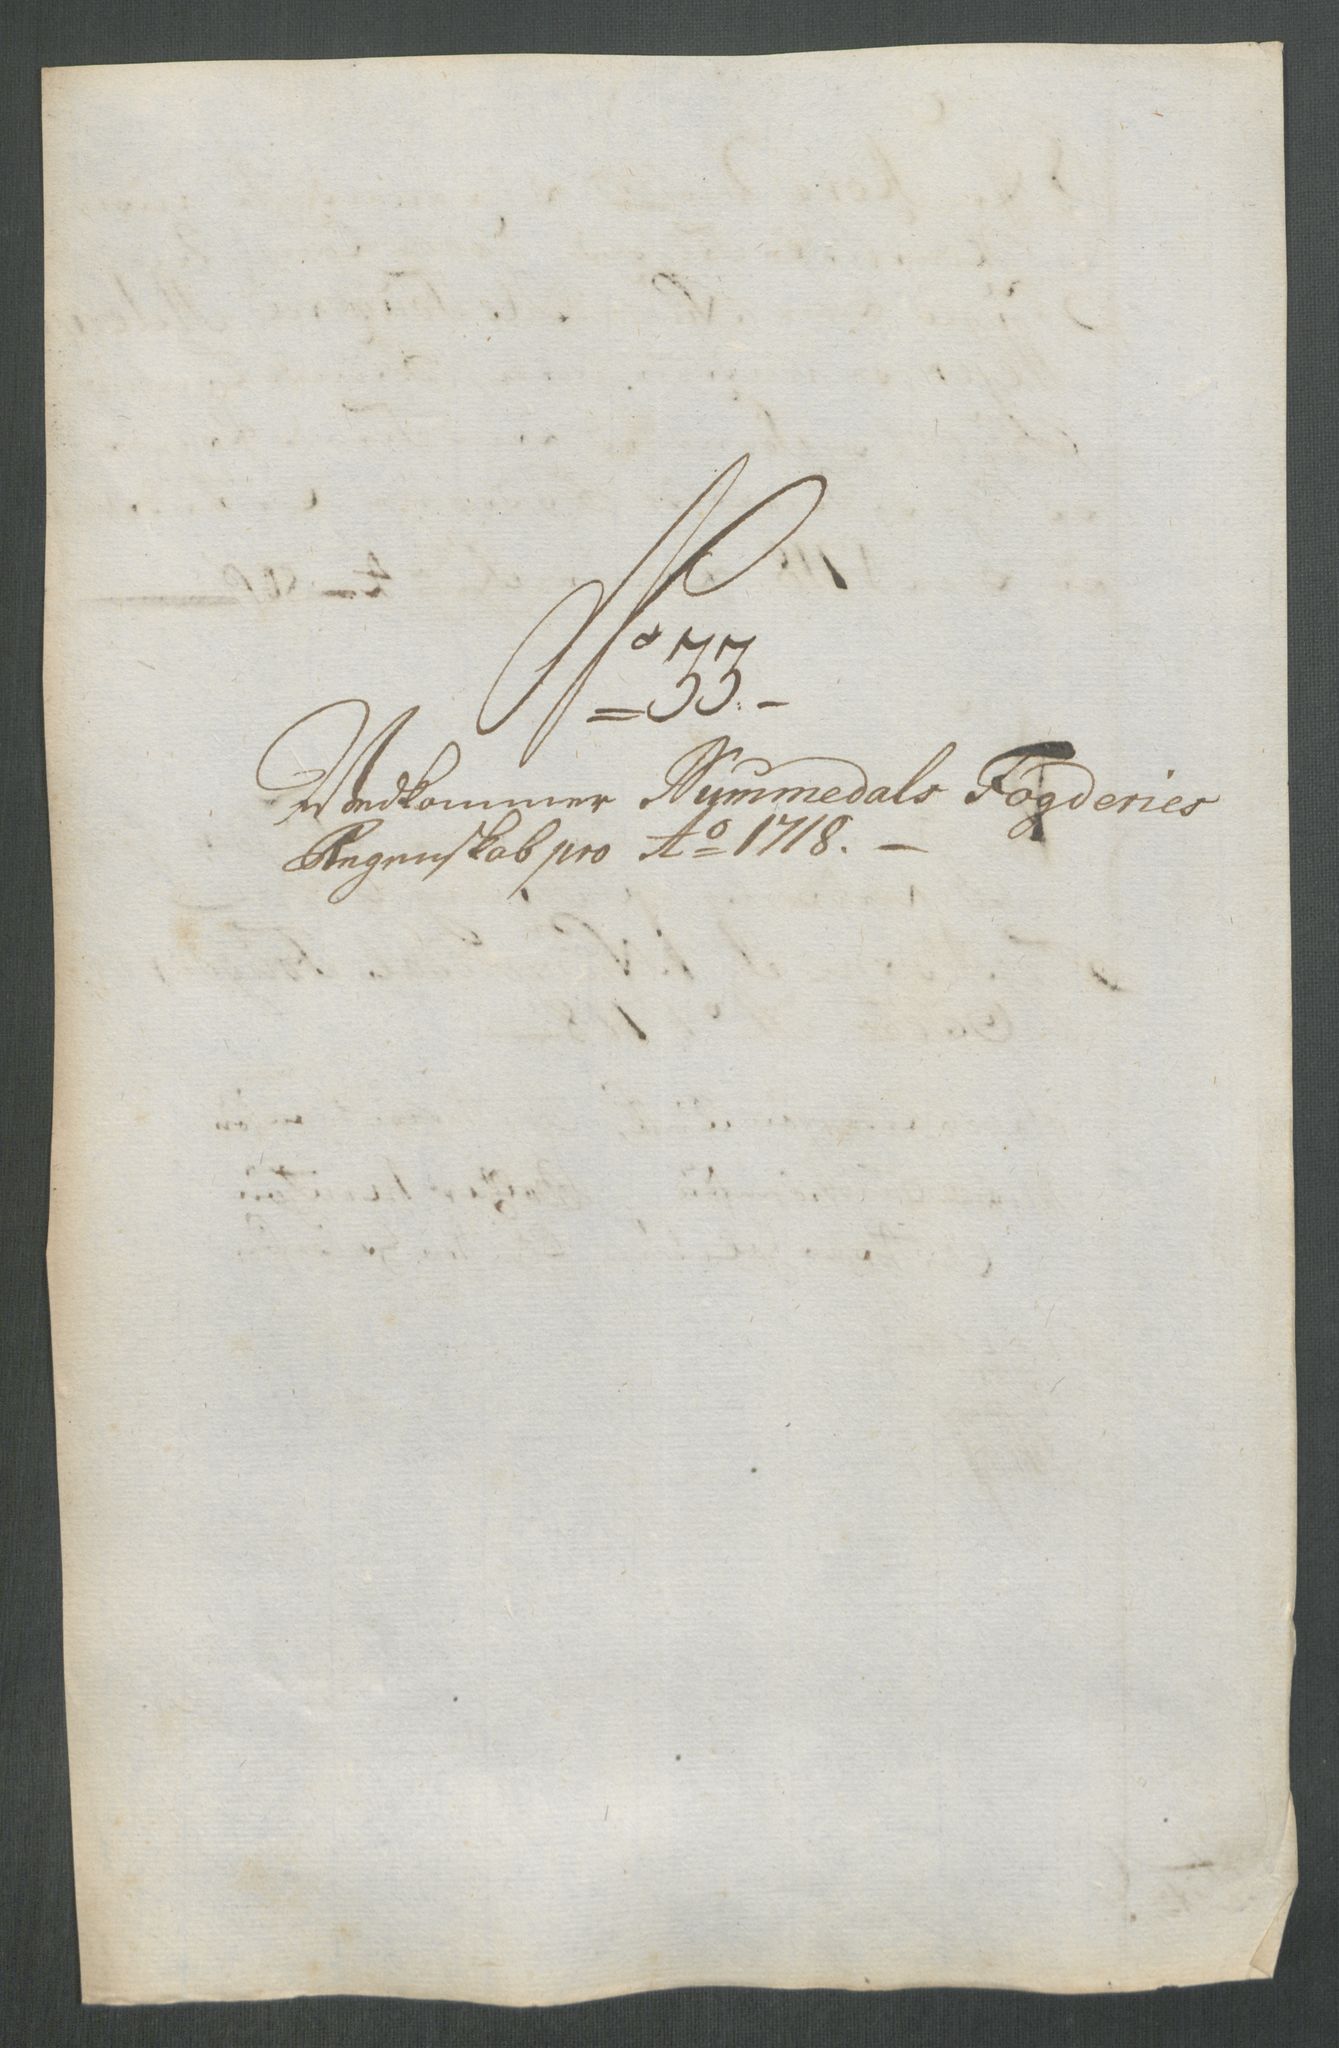 No 33.
Vedkommer Nummedals Fogderies
Regenskab pro Ao 1718.